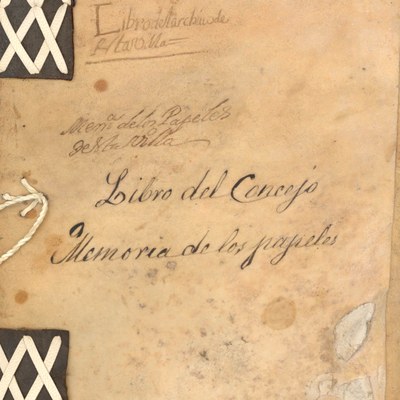 Libro del Archivo de
esta Villa
Mem.ª de los Papeles
de esta Villa
Libro del Concejo
Memoria de los papeles